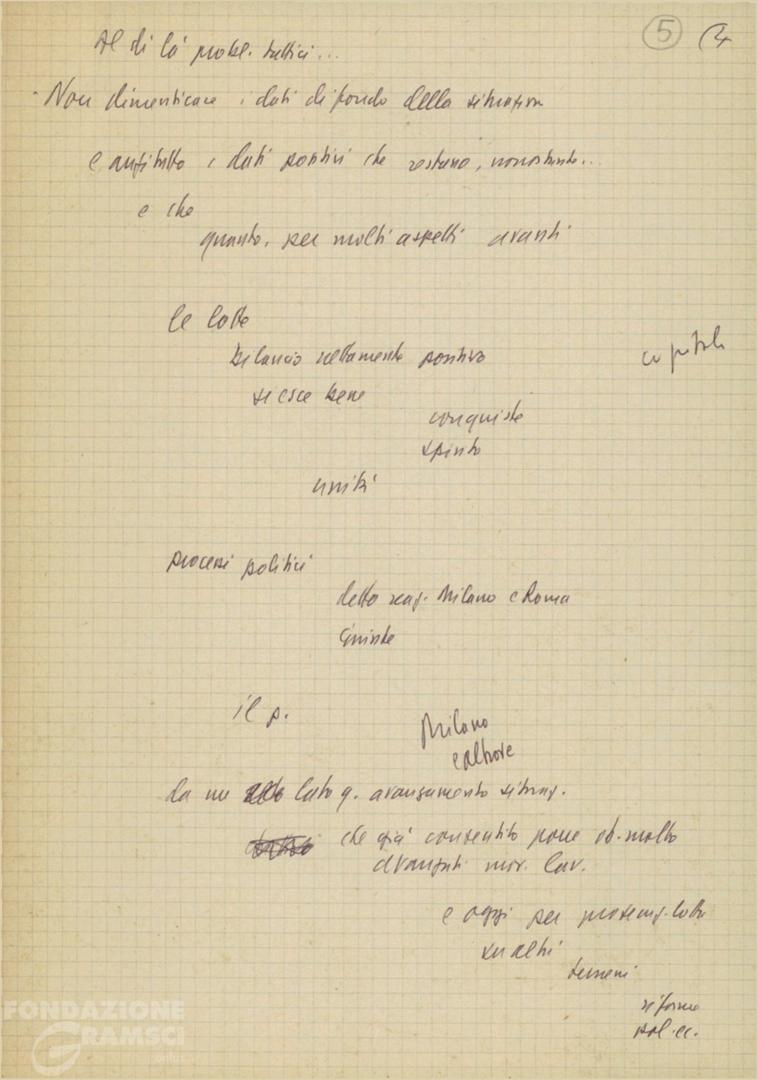 5 (4
Al di là probl. tattici...
- Non dimenticare i dati di fondo della situazione
e anzitutto i dati positivi che restano, nonostante...
e che
quanto, per molti aspetti avanti
le lotte
bilancio nettamente positivo
capitale
si esce bene
conquiste
spinta
unità
processi politici
detto reaz. Milano e Roma
sinistre
il p.
Milano
e altrove
da un lato q. avanzamento situaz.
che già consentito porre ob. molto
avanzati mov. lav.
e oggi per proseng. lotta
su altri
terreni
riforme
pol. ec.
FONDAZIONE
GRAMSCI
onlus